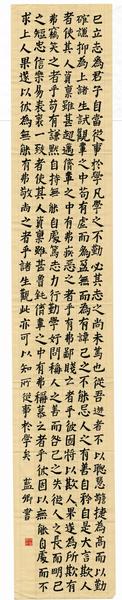 已立志為君子自當從事於學凡學之不勤必其志之尚未篤也從吾遊者不以聰慧警捷為高而以勤
確謙抑為上諸生試觀儕輩之中苟有虛而為盈無而為有諱己之不能忌人之有善自矜自是大言欺人
者使其人資稟雖甚超邁儕輩之中有弗疾惡之者乎有弗鄙賤之者乎彼固將以欺人人果遂為所欺有
弗竊笑之者乎苟有謙默自持無能自處篤志力行勤學好問稱人之善而咎己之失從人之長而明己
之短忠信樂易表裏一致者使其人資稟雖甚魯鈍儕輩之中有弗稱慕之者乎彼固以無能自處而不
求上人人果遂以彼為無能有弗敬尚之者乎諸生觀此亦可以知所從事於學矣 書